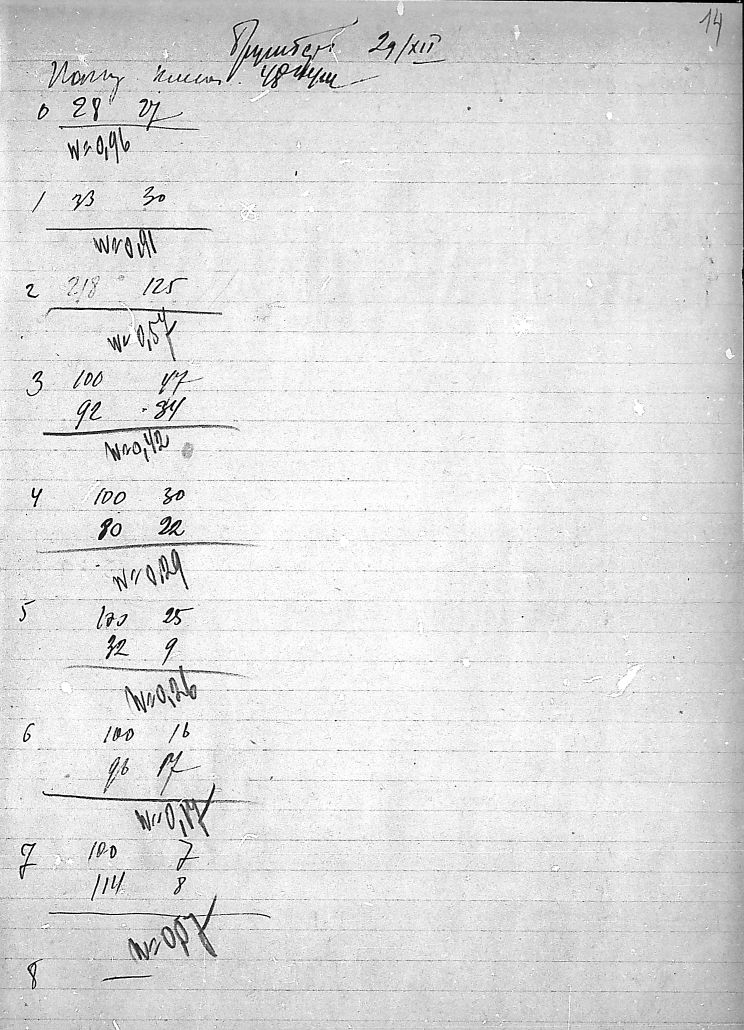 14
29/XII
0 28 27
w=0,96
1 33 30
w=0,91
2 218 125
w=0,57
3 100 47
92 34
w=0,42
4 100 30
80 22
w=0,29
5 100 25
32 9
w=0,26
6 100 16
96 17
w=0,17
7 100 7
114 8
w=0,07
8 —